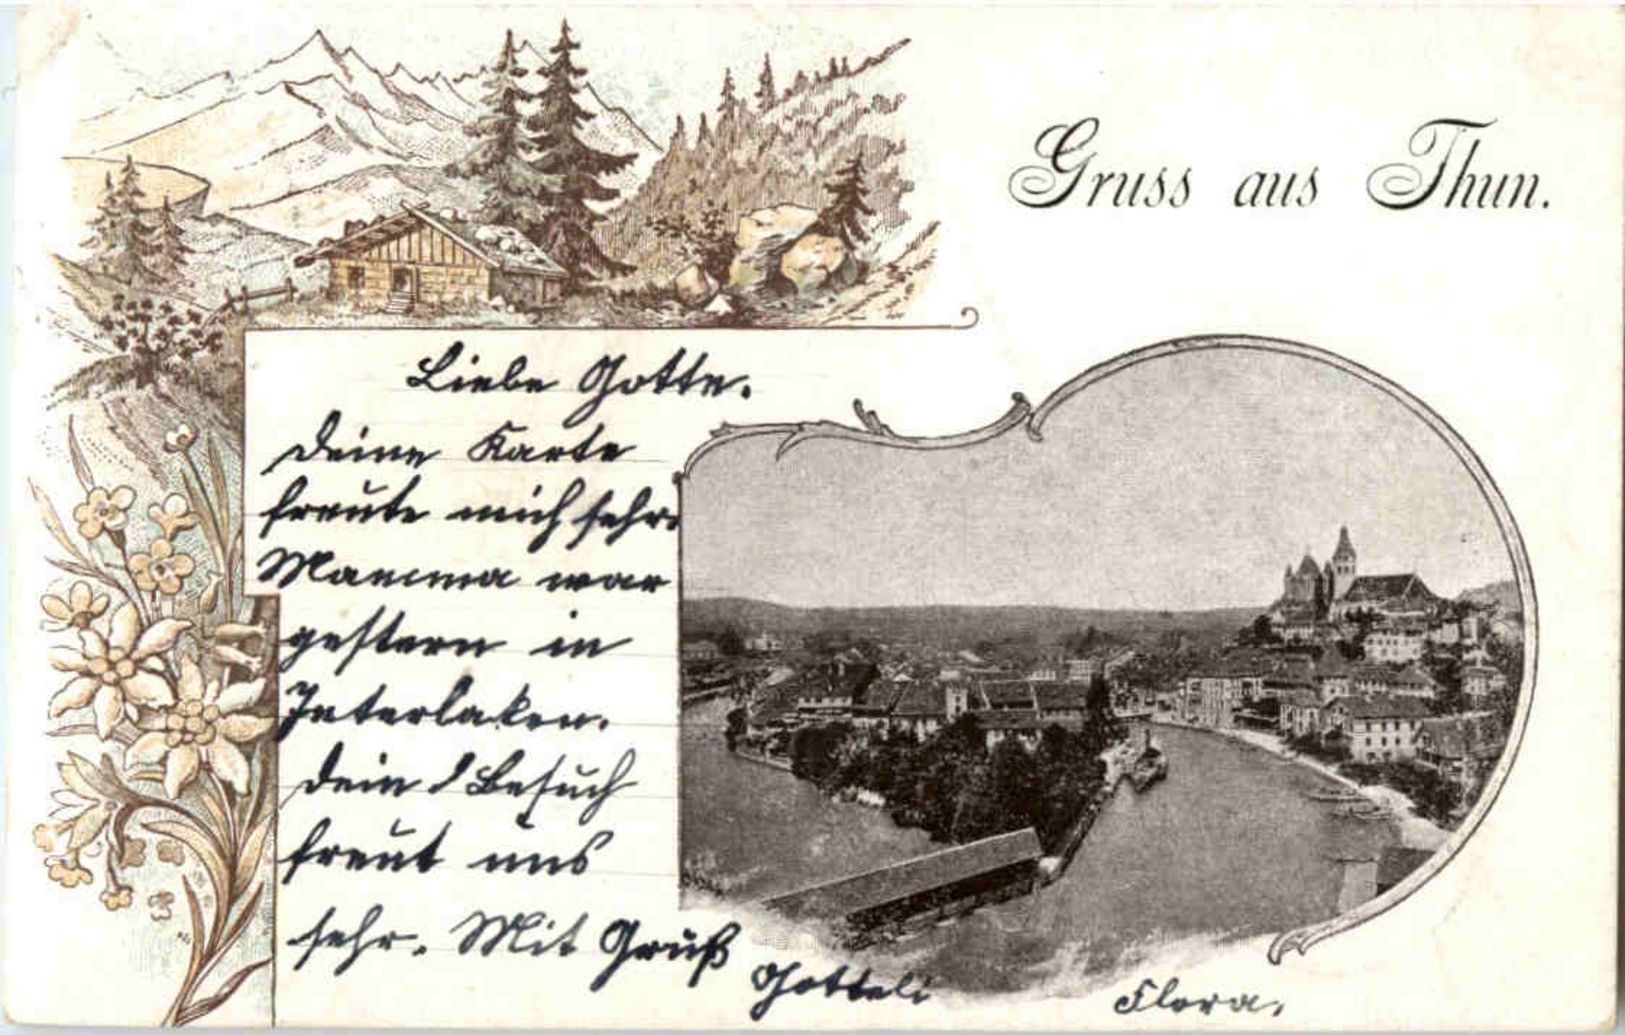 Gruss aus Thun.
Liebe Gotte.
Deine Karte
freute mich sehr.
Mamma war
gestern in
Interlaken.
Dein l Besuch
freut uns
sehr. Mit Gruß
Gotteli
Flora.